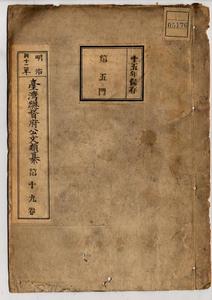 05179
十五年保存
第五門
明治
四十二年
臺灣總督府公文類纂
第十九卷